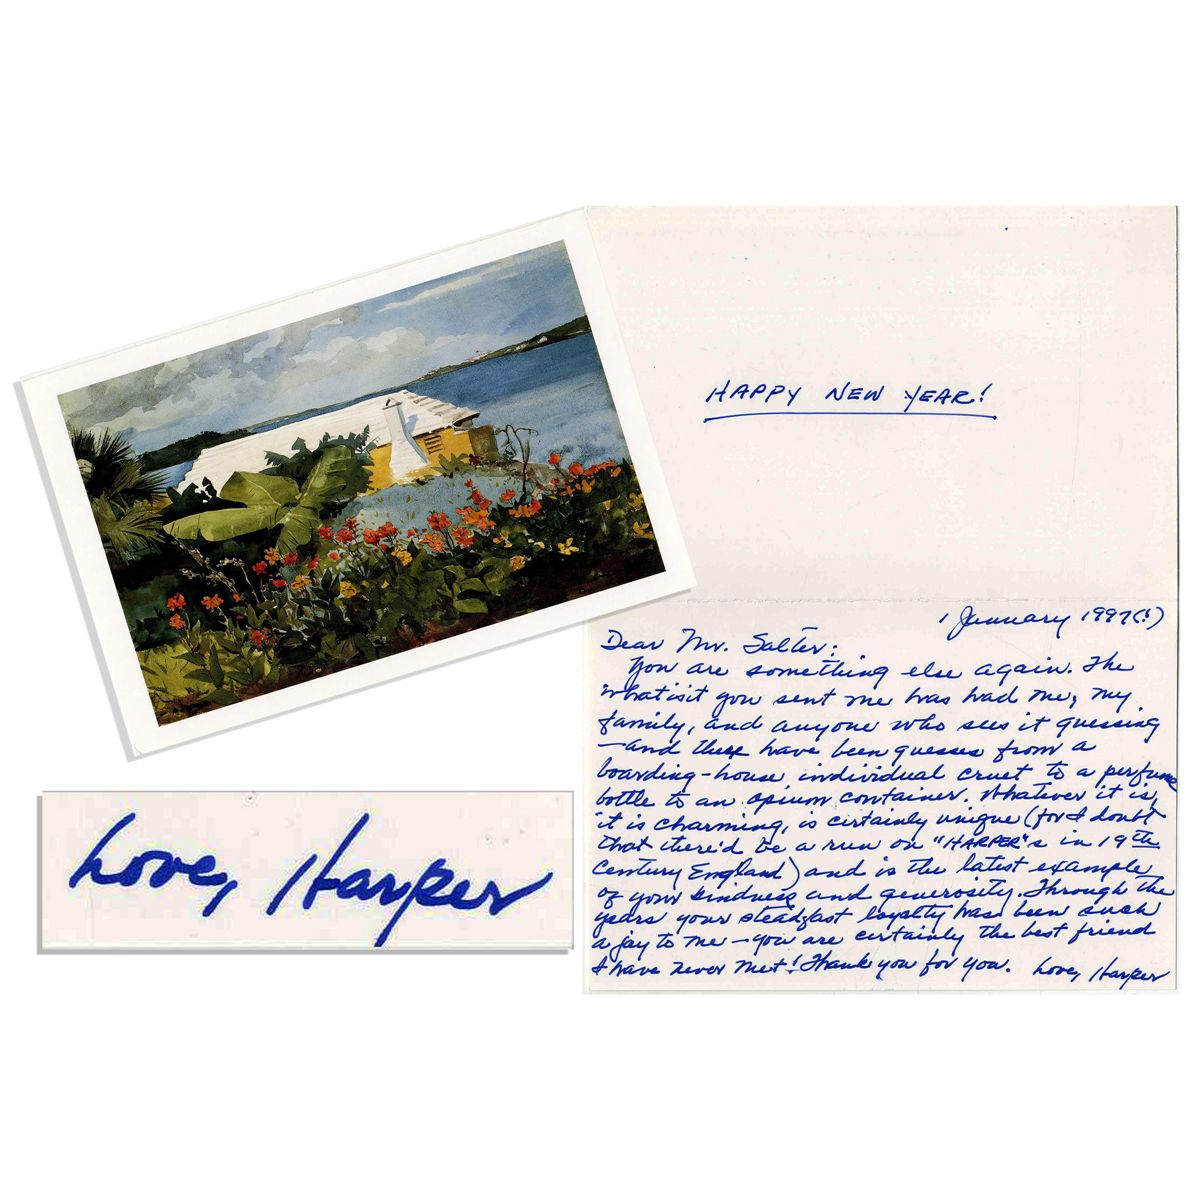 HAPPY NEW YEAR!
1 January 1997(!)
Dear Mr. Salter:
You are something else again. The
whatisit you sent me has had me, my
family, and anyone who sees it guessing
—and there have been guesses from a
boarding-house individual cruet to a perfume
bottle to an opium container. Whatever it is,
it is charming, is certainly unique (for I doubt
that there'd be a run on "HARPER"s in 19th
Century England) and is the latest example
of your kindness and generosity. Through the
years your steadfast loyalty has been such
a joy to me — you are certainly the best friend
I have never met! Thank you for you. Love, Harper
Love, Harper